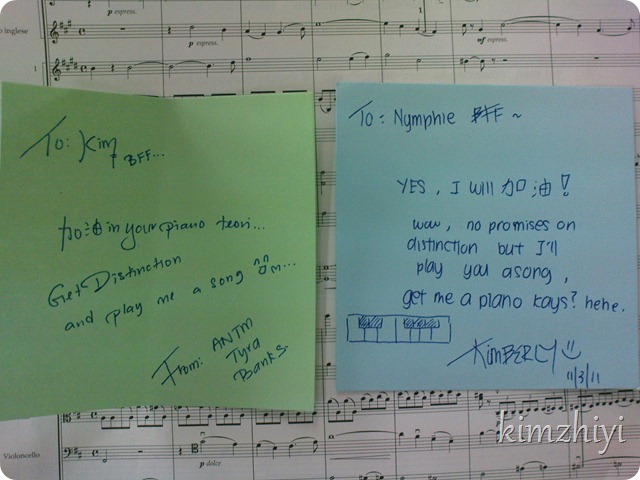 o inglese
p espress.
p espress.
mf espress.
1
To: Kim
BFF...
加油 in your piano teori...
Get Distinction
and play me a song
From: ANTM
Tyra
Banks.
To: Nymphie BFF ~
YES, I will 加油!
wow, no promises on
distinction but I'll
play you asong,
get me a piano kays? hehe.
KimBERLY
11/3/11
Violoncello
p dolce
kimzhiyi